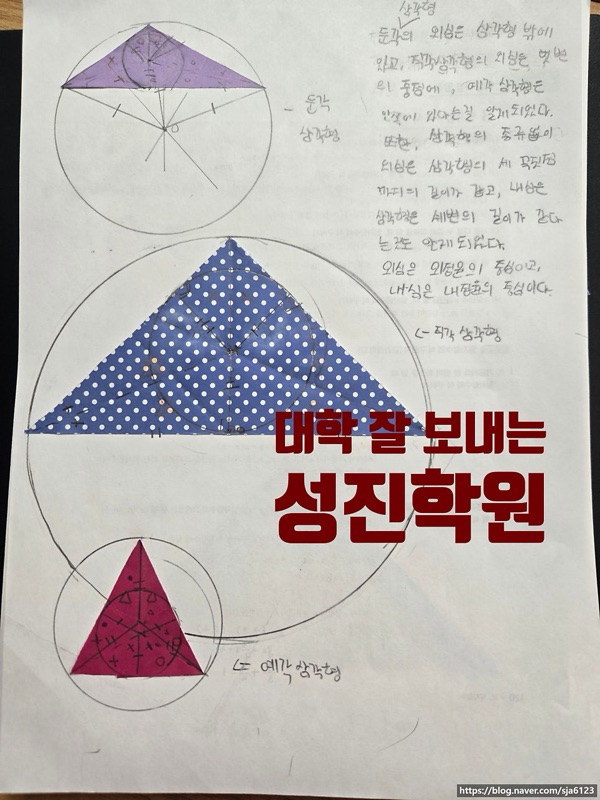 삼각형
둔각의 외심은 삼각형 밖에
있고, 직각삼각형의 외심은 빗변
의 중점에, 예각 삼각형은
안쪽에 있다는걸 알게되었다.
또한, 삼각형의 종류없이
외심은 삼각형의 세 꼭짓점
까지의 길이가 같고, 내심은
삼각형은 세변의 길이가 같다
는것도 알게 되었다.
외심은 외접원의 중심이고,
내심은 내접원의 중심이다.
- 둔각
삼각형
O
<- 직각 삼각형
대학 잘 보내는
성진학원
<- 예각 삼각형
https://blog.naver.com/sja6123